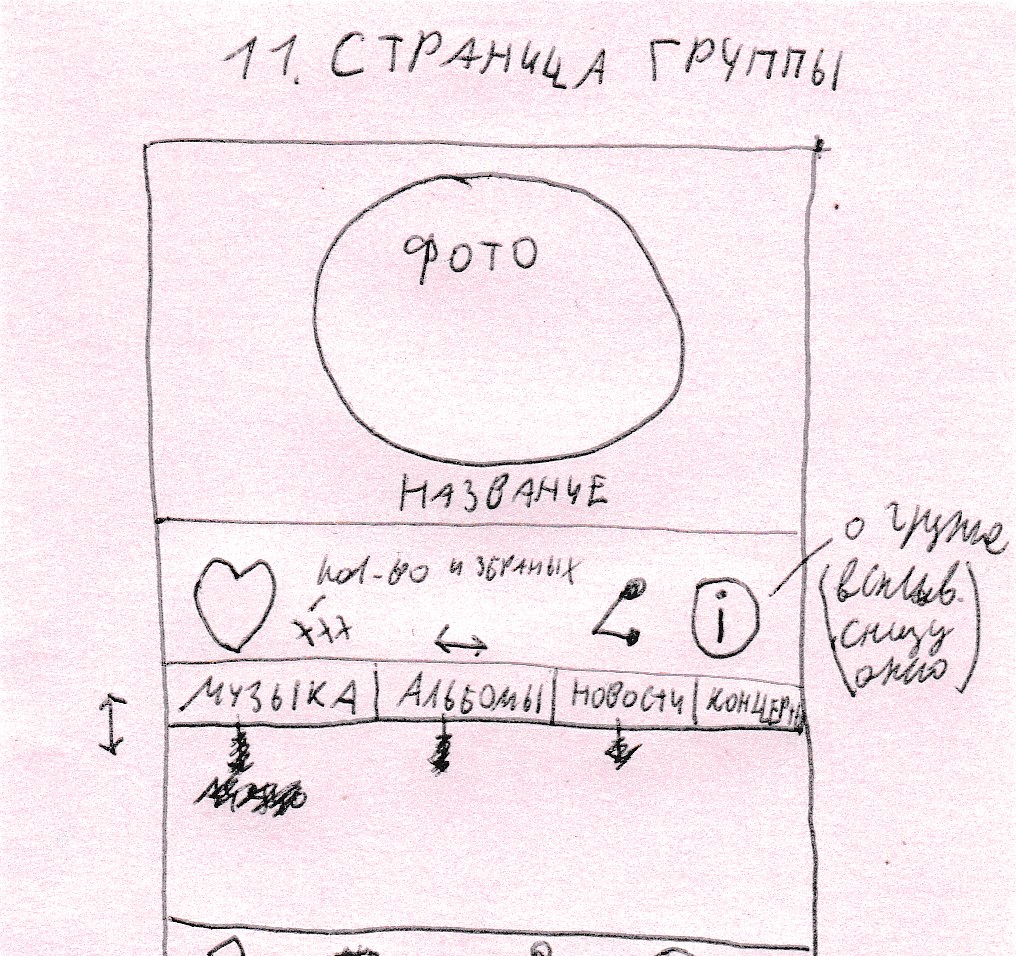 11. СТРАНИЦА ГРУППЫ
ФОТО
НАЗВАНИЕ
кол-во избраных
xxx
i
о группе
(всплыв.
снизу
окно)
МУЗЫКА | АЛЬБОМЫ | НОВОСТИ | КОНЦЕРТЫ